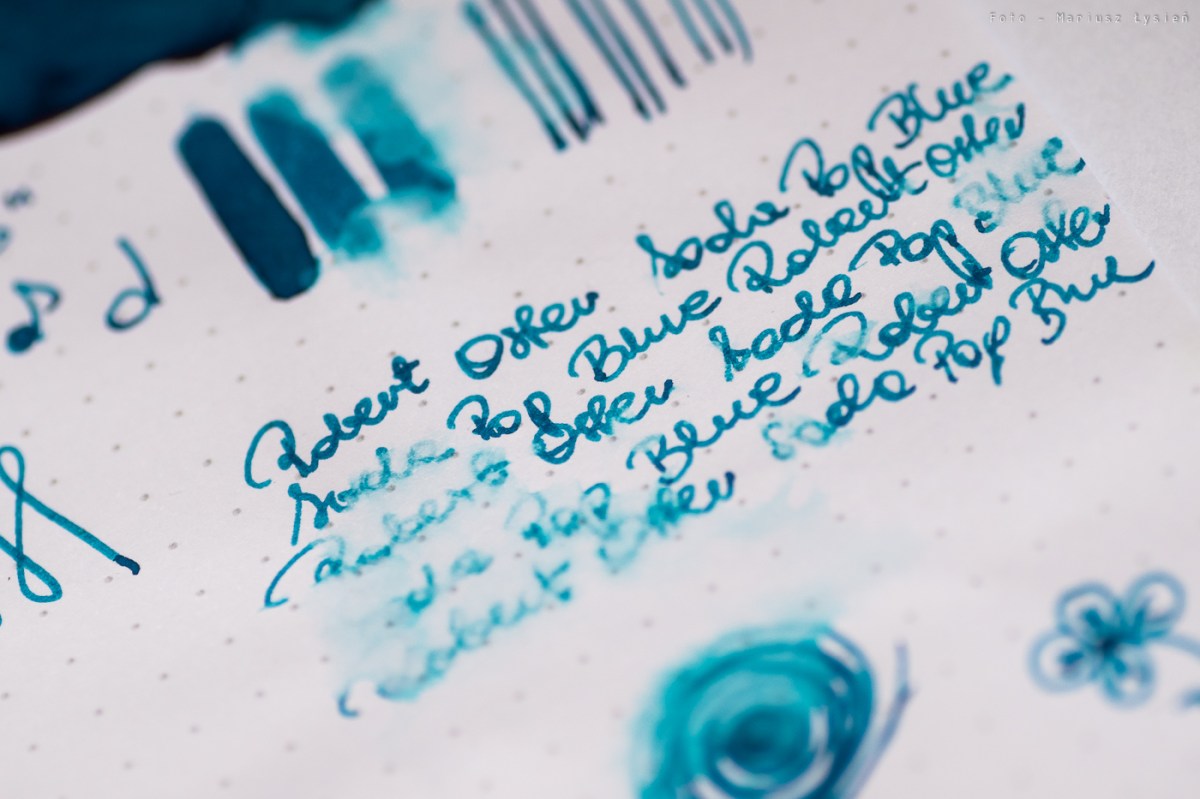 Foto - Mariusz Łysień
Robert Oster Soda Pop Blue
Soda Pop Blue Robert Oster
Robert Oster Soda Pop Blue
da Pop Blue Robert Oster
Robert Oster Soda Pop Blue